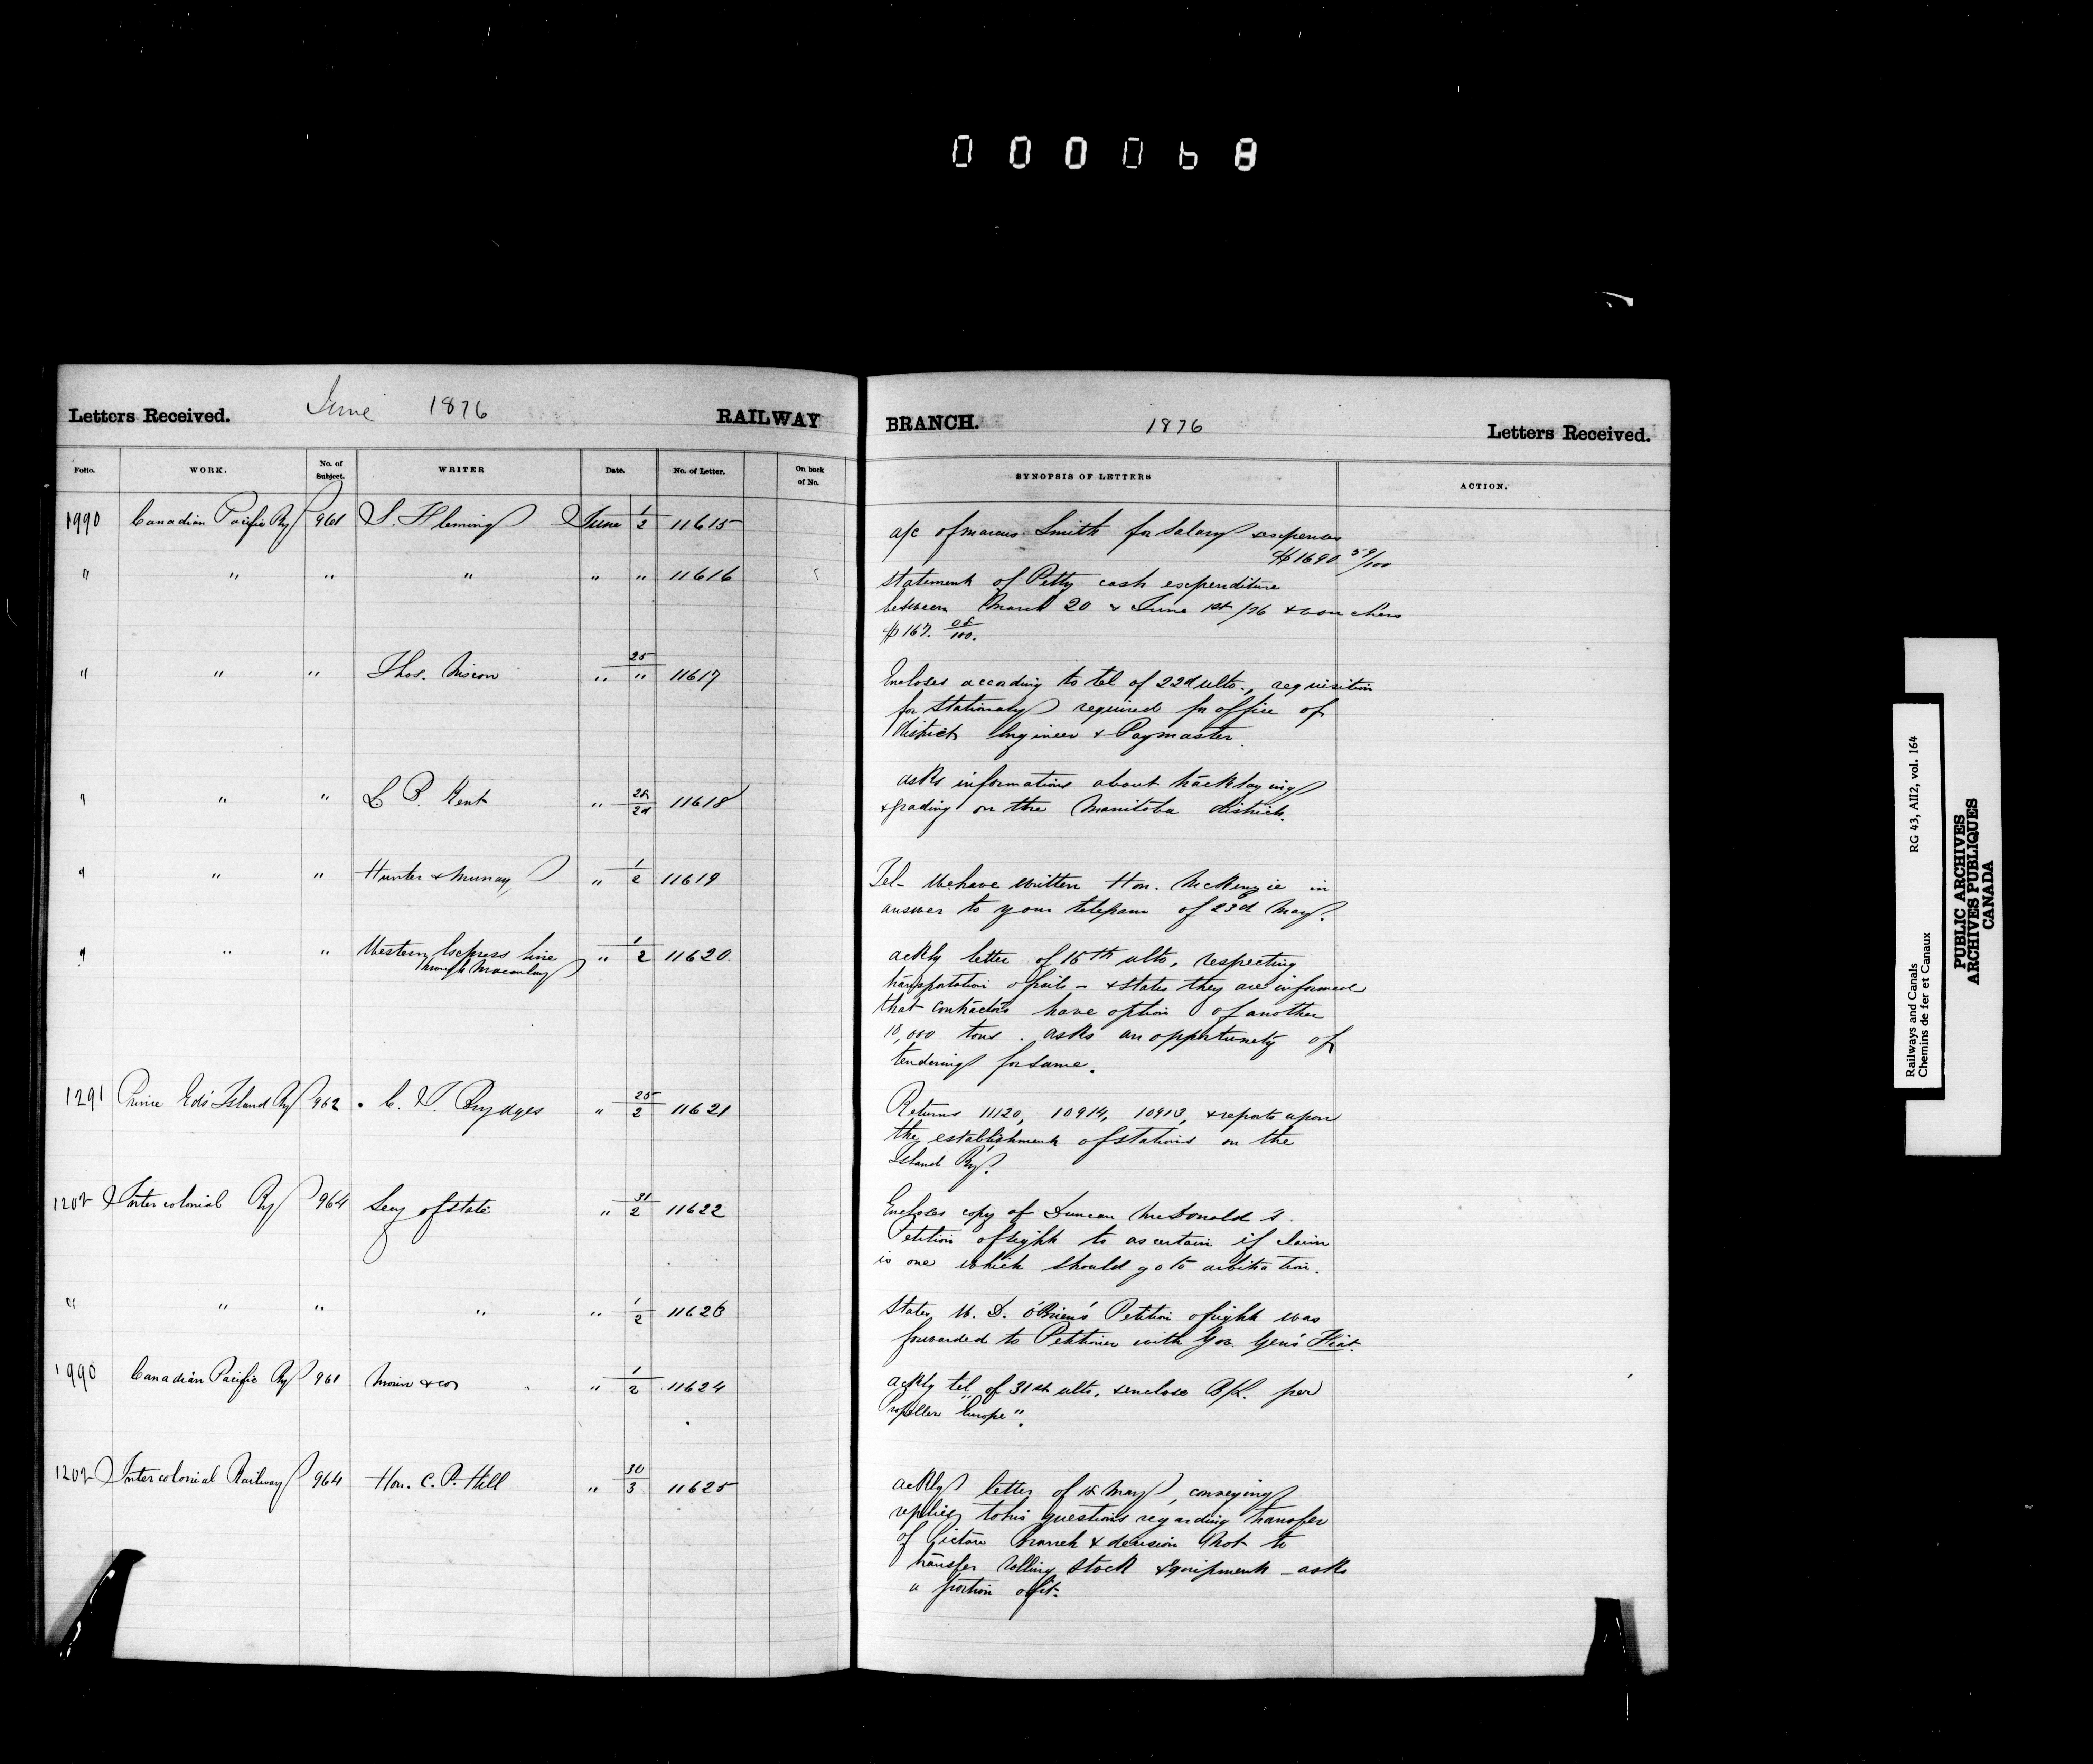 000068
Letters Received. June 1876 RAILWAY
Folio. WORK. No. of Subject. WRITER Date. No. of Letter. On back of No.
1990 Canadian Pacific Ry 961 S. Fleming June 1/2 11615
" " " " " " 11616
" " " Thos. Nixon " 25/" 11617
" " " L B. Kent " 11618
" " " Hunter & Murray " 1/2 11619
" " " Western Express Line " 1/2 11620
through Macaulay
1291 Prince Ed's Island Ry 962 C. J. Brydges " 25/2 11621
1202 Intercolonial Ry 964 Secy of State " 31/2 11622
" " " " " 1/2 11623
1990 Canadian Pacific Ry 961 " 1/2 11624
1202 Intercolonial Railway 964 Hon. C. P. Hill " 30/3 11625
BRANCH. 1876 Letters Received.
SYNOPSIS OF LETTERS ACTION.
a/c of Marcus Smith for Salary & expenses
$1690 59/100
Statement of Petty cash expenditure
between March 20 & June 1st /76 & vouchers
$167. 08/100.
Encloses according to tel of 22d ulto., requisition
for Stationary required for office of
district Engineer & Paymaster.
asks information about tracklaying
& grading on the Manitoba district.
Tel- We have written Hon. McKenzie in
answer to your telegram of 23d May.
ackly letter of 15th ulto, respecting
transportation of rails - & states they are informed
that contractors have option of another
10,000 tons. asks an opportunety of
tendering for same.
Returns 11120, 10914, 10913, & reports upon
the establishment of stations on the
Island Ry.
Encloses copy of Duncan McDonald's
Petition of right to ascertain if claim
is one which should go to arbitration.
States W. D. O'Brien's Petition of right was
forwarded to Petitioner with Gov. Gen's Fiat.
ackly tel of 31st ulto, & enclose B/L. per
Propeller "Europe".
ackly letter of May, conveying
replies to his questions regarding transfer
of Pictou Branch & decision not to
transfer rolling stock & equipment - asks
a portion of it.
Railways and Canals RG 43, AII2, vol. 164
Chemins de fer et Canaux
PUBLIC ARCHIVES
ARCHIVES PUBLIQUES
CANADA